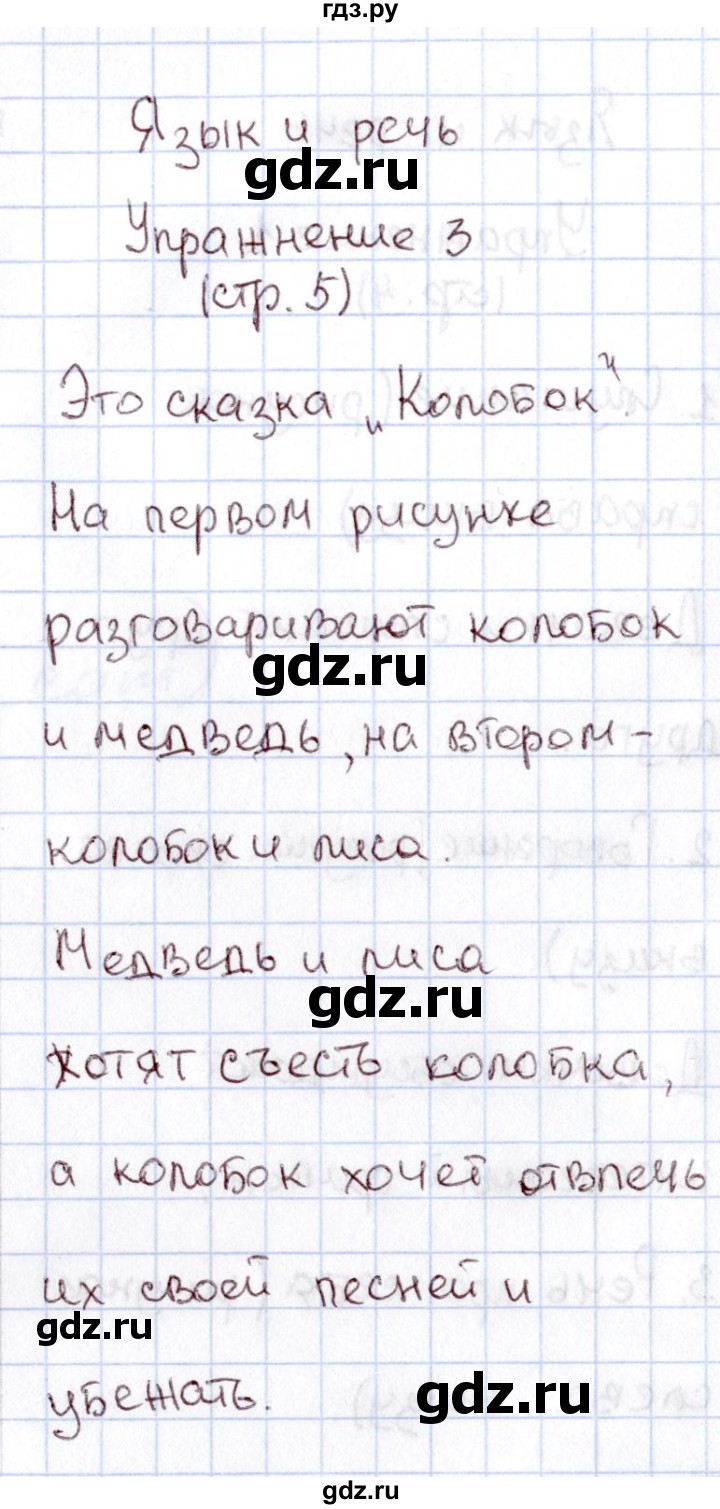 гдз.ру
Язык и речь
gdz.ru
Упражнение 3
(стр. 5)
Это сказка „Колобок“.
На первом рисунке
разговаривают колобок
gdz.ru
и медведь, на втором -
колобок и лиса.
Медведь и лиса
gdz.ru
хотят съесть колобка,
а колобок хочет отвлечь
их своей песней и
gdz.ru
убежать.
gdz.ru
gdz.ru